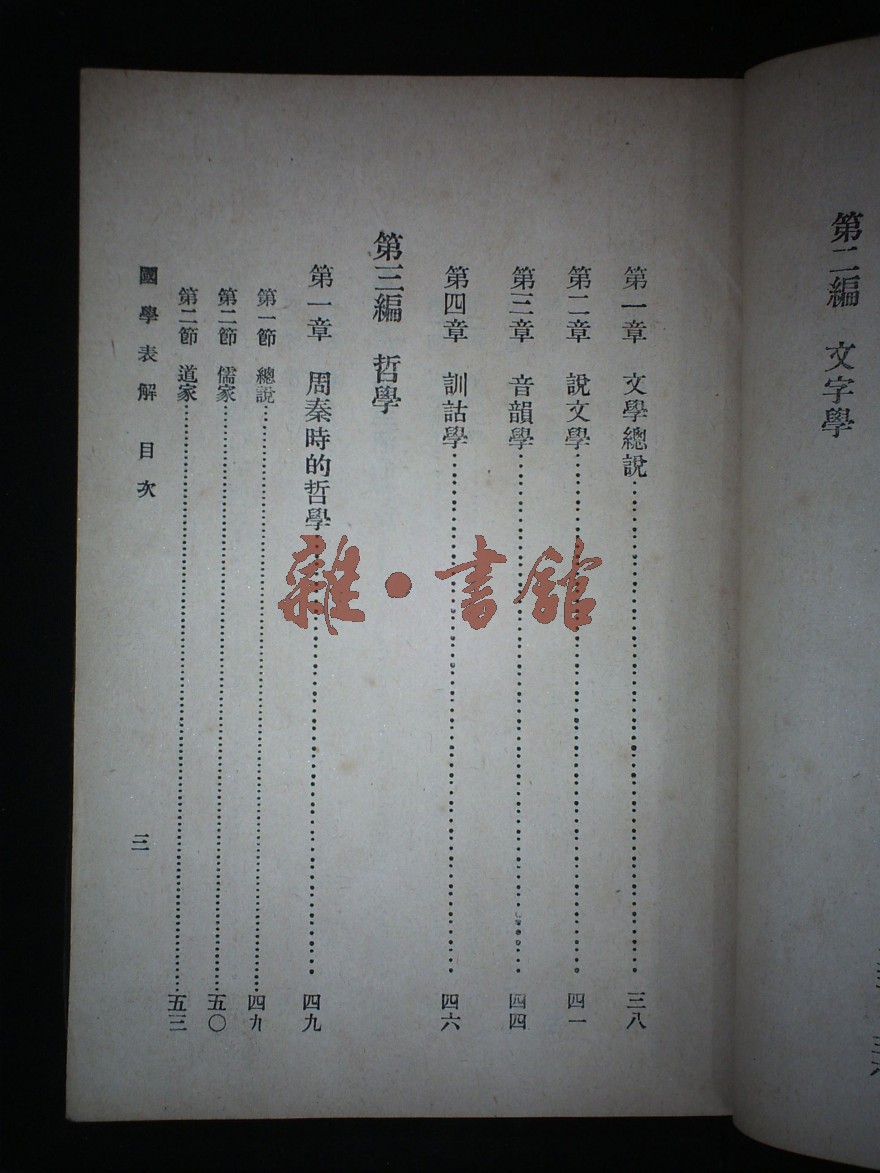 第二編　文字學
第一章　文學總說……三八
第二章　說文學……四一
第三章　音韻學……四四
第四章　訓詁學……四六
第三編　哲學
第一章　周秦時的哲學……四九
第一節　總說……四九
第二節　儒家……五〇
第二節　道家……五三
國學表解　目次　三
雜·書館